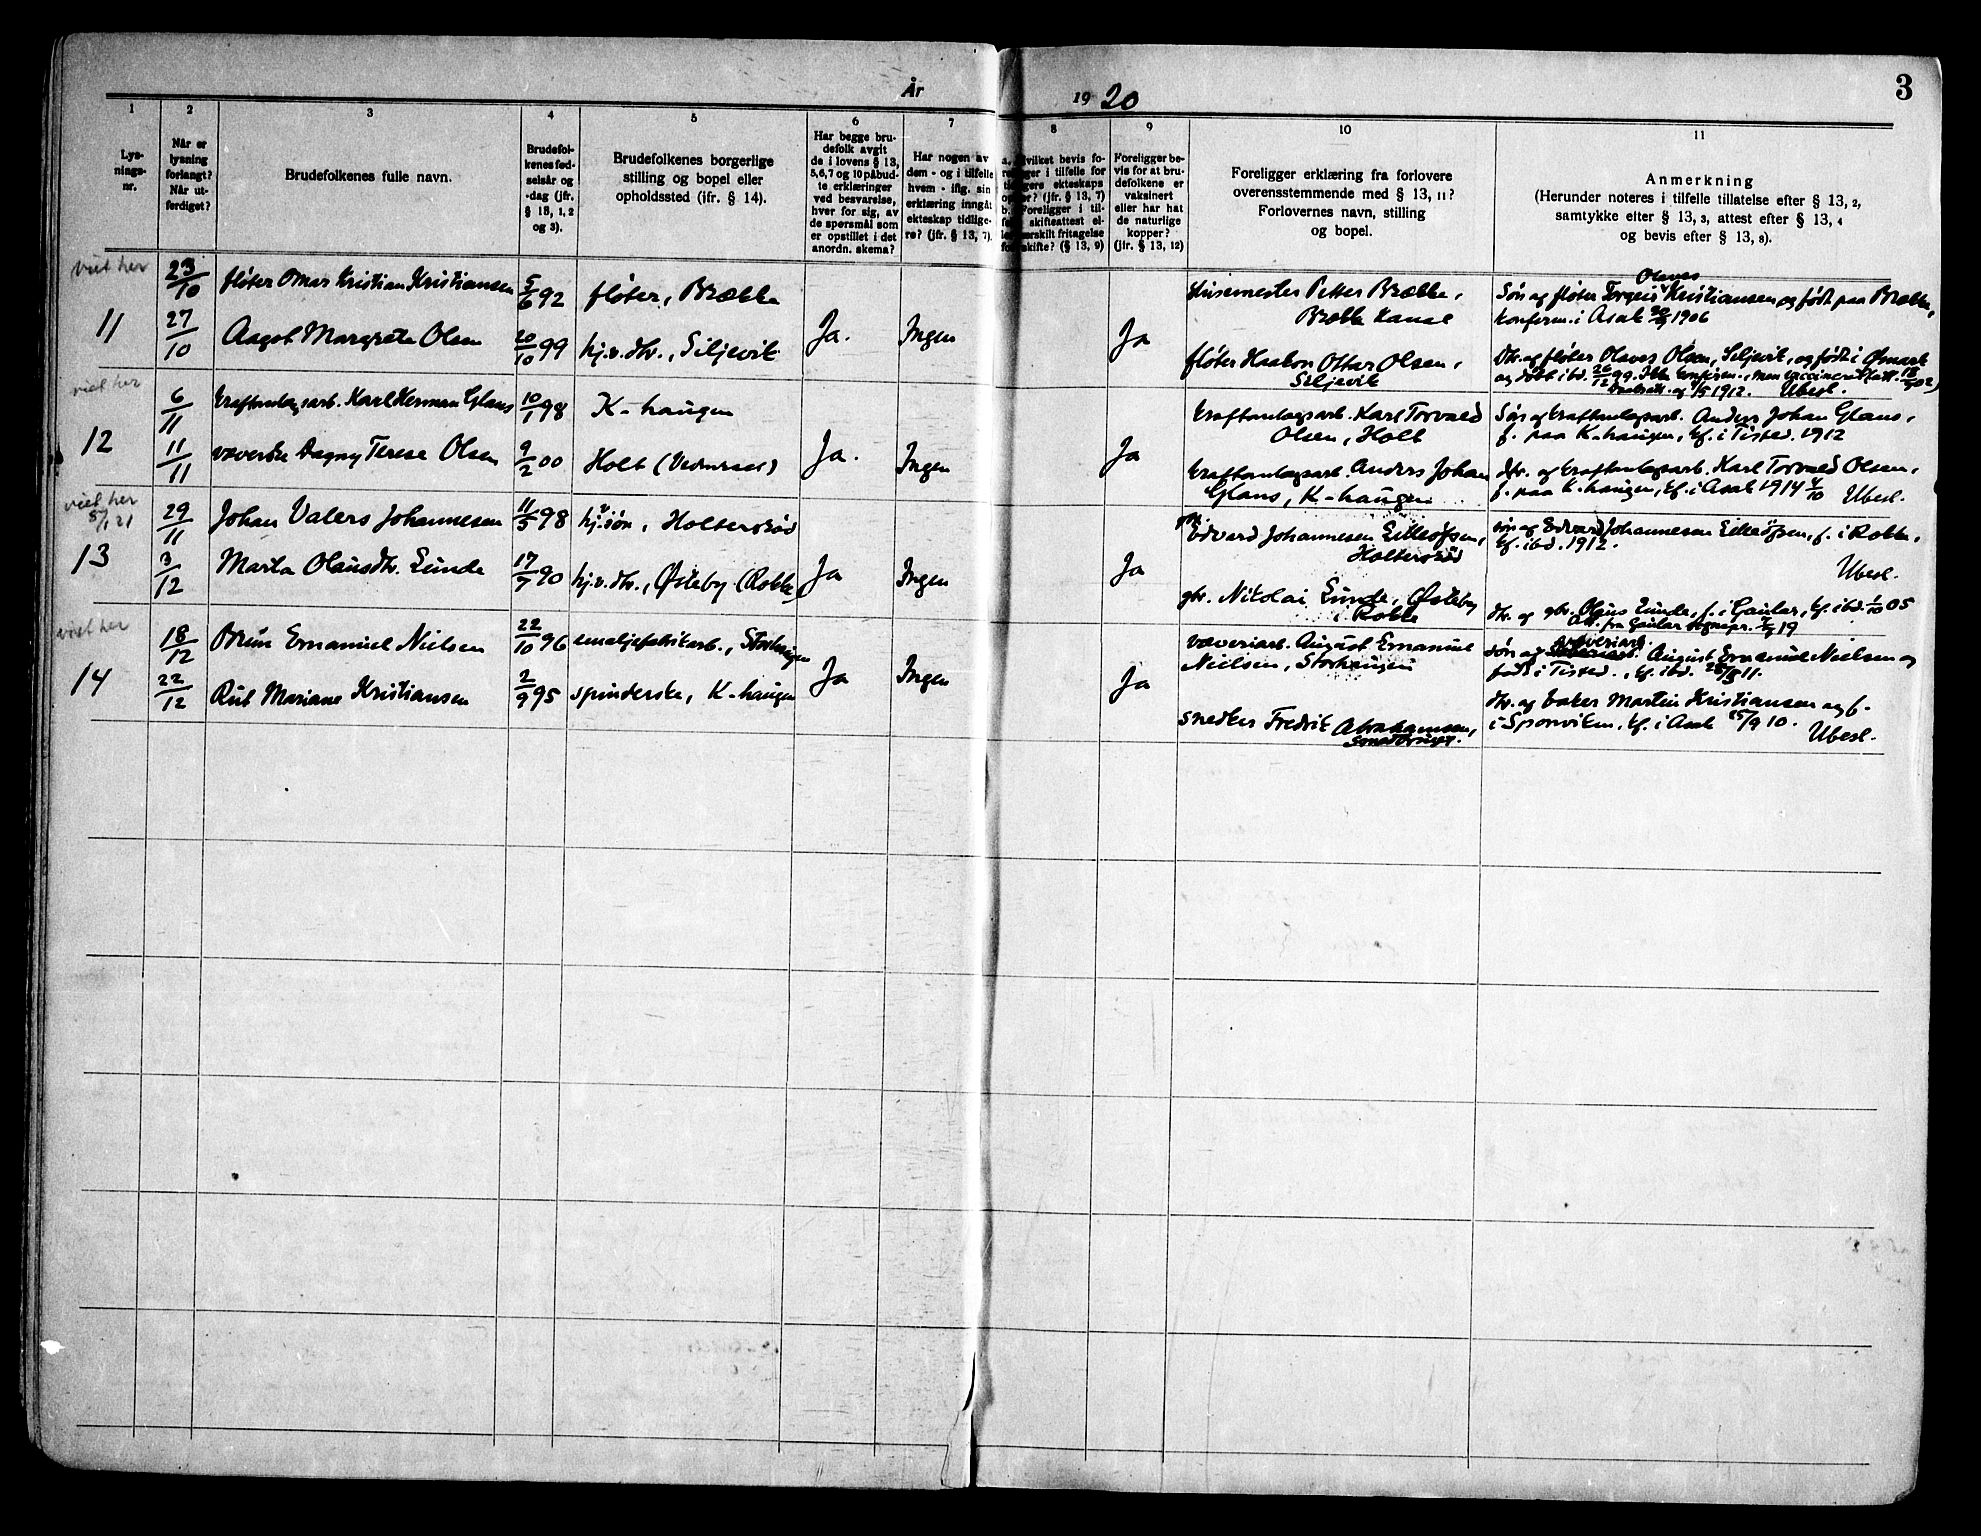 År 19 20
3
1
2
3
4
5
6
7
8
9
10
11
Lys-
nings-
nr.
Når er
lysning
forlangt?
Når ut-
ferdiget?
Brudefolkenes fulle navn.
Brudefol-
kenes fød-
selsår og
-dag (jfr.
§ 13, 1, 2
og 3).
Brudefolkenes borgerlige
stilling og bopel eller
opholdssted (jfr. § 14).
Har begge bru-
defolk avgit
de i lovens § 13,
5,6,7 og 10 påbud-
te erklæringer
ved besvarelse,
hver for sig, av
de spørsmål som
er opstillet i det
anordn. skema?
Har nogen av
dem - og i tilfelle
hvem - iflg. sin
erklæring inngåt
ekteskap tidlige-
re? (jfr. § 13, 7).
Foreligger be-
vis for at bru-
defolkene er
vaksinert
eller har hat
de naturlige
kopper?
(jfr. § 13, 12)
Foreligger erklæring fra forlovere
overensstemmende med § 13, 11?
Forlovernes navn, stilling
og bopel.
Anmerkning
(Herunder noteres i tilfelle tillatelse efter § 13, 2,
samtykke efter § 13, 3, attest efter § 13, 4
og bevis efter § 13, 8).
viet her
11
23/10
27/10
fløter Omar Kristian Kristiansen
Aagot Margrete Olsen
5/6 92
20/10 99
fløter, Brække
hj.v. dtr., Siljevik
Ja.
Ingen
Ja
Husemester Petter Brække,
Brække Kanal
fløter Haakon Ottar Olsen,
Siljevik
Olaves
Søn ag fløter Torgeis Kristiansen og født paa Brække,
Konferm. i Asak 1906
Dtr. ag fløter Olaves Olsen, Siljevik, og født i Øsmark
og døbt ibd. 26/12 99. Ikke konferm., men vaccineret
1912. Ubesl.
viet her
12
6/11
11/11
kraftanlagsarb. Karl Herman Glans
væverske Dagny Terese Olsen
10/1 98
9/2 00
K-haugen
Holt
Ja.
Ingen
Ja
kraftanlagsarb. Karl Torvald
Olsen, Holt
kraftanlagsarb. Anders Johan
Glans, K-haugen
Søn ag kraftanlagsarb. Anders Johan Glans,
f. paa K-haugen, kf. i Tisted. 1912
dtr. ag kraftanlagsarb. Karl Torvald Olsen,
f. paa K.haugen, kf. i Asak 1914 4/10 Ubesl.
viet her
8/1 21
13
29/11
3/12
Johan Valers Johannesen
Marta Olausdtr. Lunde
11/5 98
17/7 90
hj.søn, Holtersrød
hj.v. dtr., Østeby (Rokke)
Ja
Ingen
Ja
Edvard Johannesen
Holtersrød
gbr. Nikolai Lunde, Østeby
i Rokke
søn ag Edvard Johannesen f. i Rokke,
kf. ibd. 1912.
Ubesl.
dtr. ag gbr. Olaus Lunde, f. i Gaular, kf. ibd. 1/10 05
Att. fra Gaular sognepr. 19
viet her
14
18/12
22/12
Brun Emanuel Nielsen
Rut Mariane Kristiansen
22/10 96
2/9 95
emaljefabrikarb., Storhaugen
spinderske, K-haugen
Ja
Ingen
Ja
væveriarb. August Emanuel
Nielsen, Storhaugen
snedker Fredrik Abrahamsen,
søn ag væveriarb. August Emanuel Nielsen og
født i Tisted., kf. ibd. 28/5 11.
dtr. ag baker Martin Kristiansen og f.
i Sponviken, kf. i Asak 25/9 10.
Ubesl.